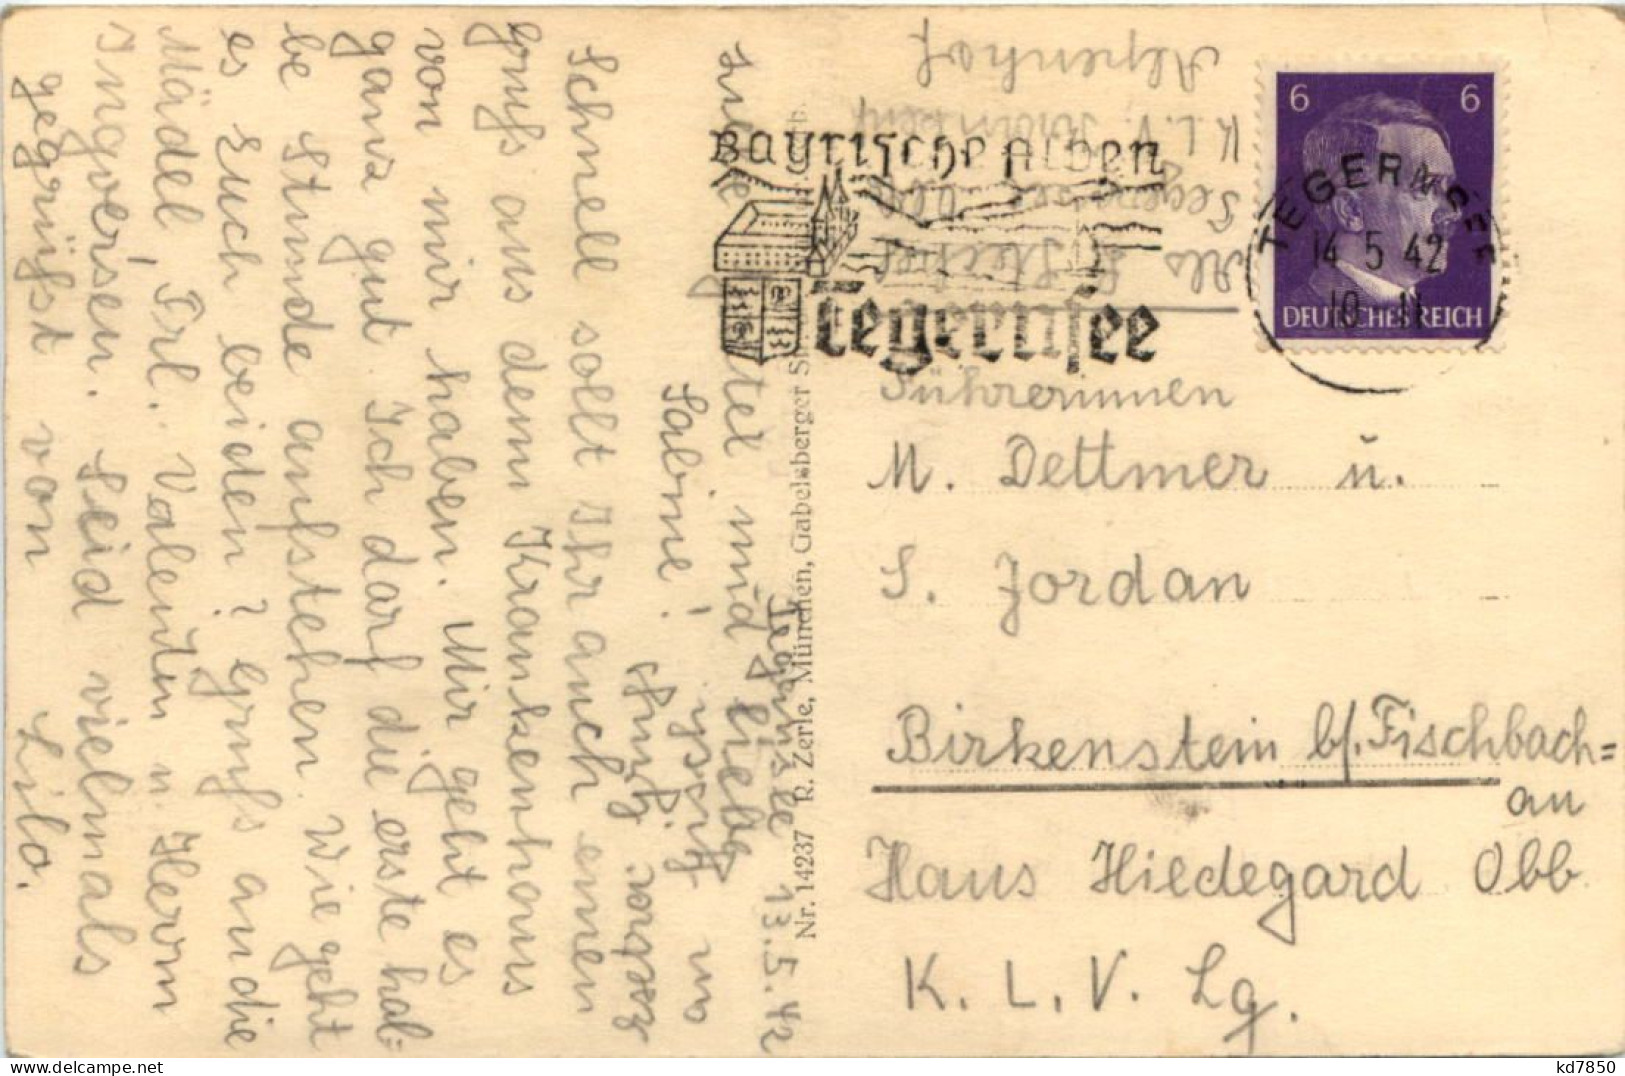 Tegernsee 13.5.42
Liebe Dettel und liebe
Sabine!
Schnell sollt Ihr auch einen
Gruß aus dem Krankenhaus
von mir haben. Mir geht es
ganz gut. Ich darf die erste hal-
be Stunde aufstehen. Wie geht
es Euch beiden? Gruß an die
Mädel, Frl. Valentin u. Herrn
Ingversen. Seid vielmals
gegrüßt von
Lilo.
Nr. 14237 R. Zerle, München, Gabelsberger Str.
Abs
Tegernsee
K.L.V.
Alpenhof
Bayrische Alpen
Tegernsee
TEGERNSEE
14 5 42
10-11
6 6
DEUTSCHES REICH
Führerinnen
M. Dettmer u.
S. Jordan
Birkenstein b/. Fischbach=
au
Haus Hildegard Obb
K. L. V. Lg.
kd7850